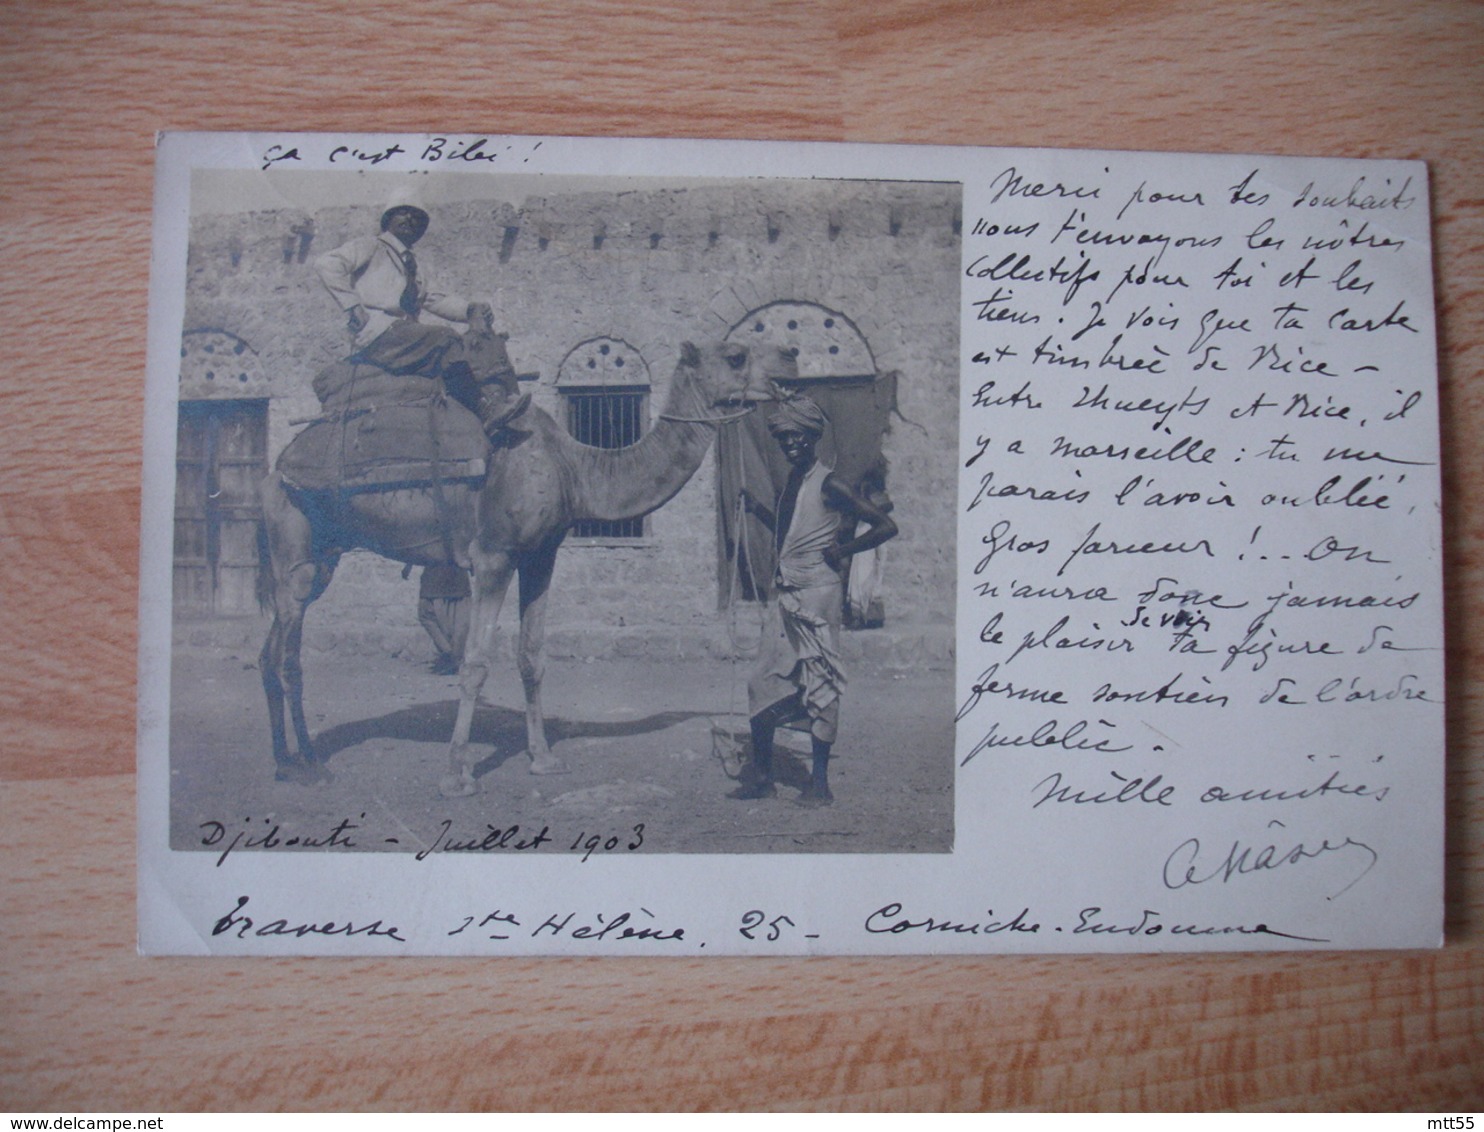 ça c'est Bibi !
Merci pour tes souhaits
nous t'envoyons les nôtres
collectifs pour toi et les
tiens. Je vois que ta carte
est timbrée de Nice -
Entre Thueyts et Nice, il
y a Marseille : tu me
parais l'avoir oublié,
Gros farceur !.. On
n'aura donc jamais
le plaisir de voir ta figure de
ferme soutien de l'ordre
public.
Mille amitiés
Djibouti - Juillet 1903
Traverse Ste Hélène. 25 - Corniche-Endoume
mtt55